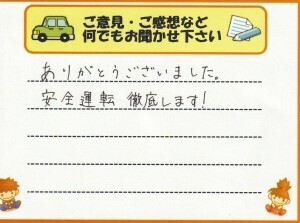 ご意見・ご感想など
何でもお聞かせ下さい
ありがとうございました。
安全運転 徹底します!